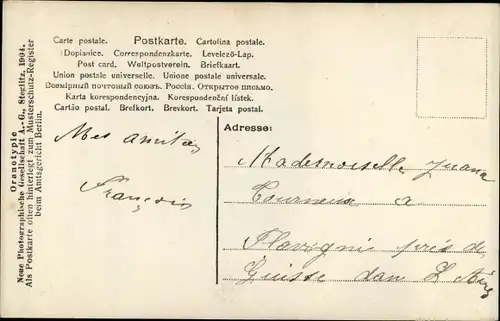 Carte postale. Postkarte. Cartolina postale.
Dopisnice. Correspondenzkarte. Levelező-Lap.
Post card. Weltpostverein. Briefkaart.
Union postale universelle. Unione postale universale.
Всемірный почтовый союзъ. Россія. Открытое письмо.
Karta korespondencyjna. Korespondenční lístek.
Cartão postal. Brefkort. Brevkort. Tarjeta postal.
Oranotypie
Neue Photographische Gesellschaft A.-G., Steglitz. 1904.
Als Postkarte offen hinterlegt zum Musterschutz-Register
beim Amtsgericht Berlin.
Mes amitiés
François
Adresse:
Mademoiselle Juana
Tourneux a
Flavignie près de
Guisse dan L